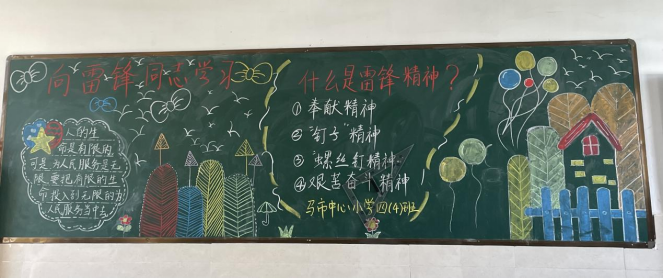 向雷锋同志学习
人的生
命是有限的
可是为人民服务是无
限要把有限的生
命投入到无限的为
人民服务当中去
什么是雷锋精神？
①奉献精神
②“钉子”精神
③“螺丝钉精神
④艰苦奋斗精神
马市中心小学四(4)班